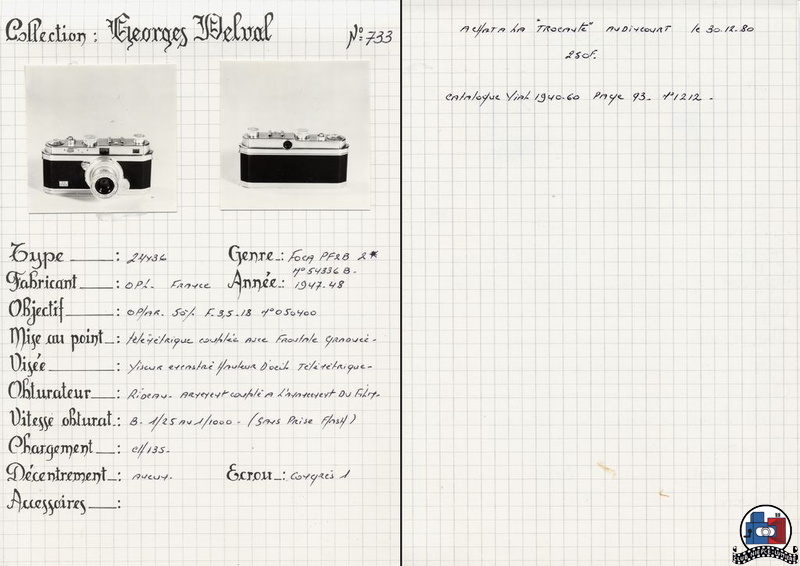 Collection : Georges Delval N°: 733
Type : 24x36 Genre : Foca PF2B 2*
n° 54336 B.
Fabricant : OPL. France Année : 1947.48
Objectif : OPlar. 50% F.3,5.18 n°050400
Mise au point : télémétrique couplée avec Frontale Graduée.
Visée : Viseur encastré Hauteur D'oeil Télémétrique.
Obturateur : Rideau. Armement couplé A L'avancement Du Film.
Vitesse obturat. : B. 1/25 au 1/1000. (Sans Prise Flash)
Chargement : CH/135.
Décentrement : Aucun. Ecrou : Congrès 1
Accessoires :
ACHAT A LA "TROCANTE" AUDINCOURT le 30.12.80
250F.
Catalogue Vial 1940.60 Page 93. n°1212.